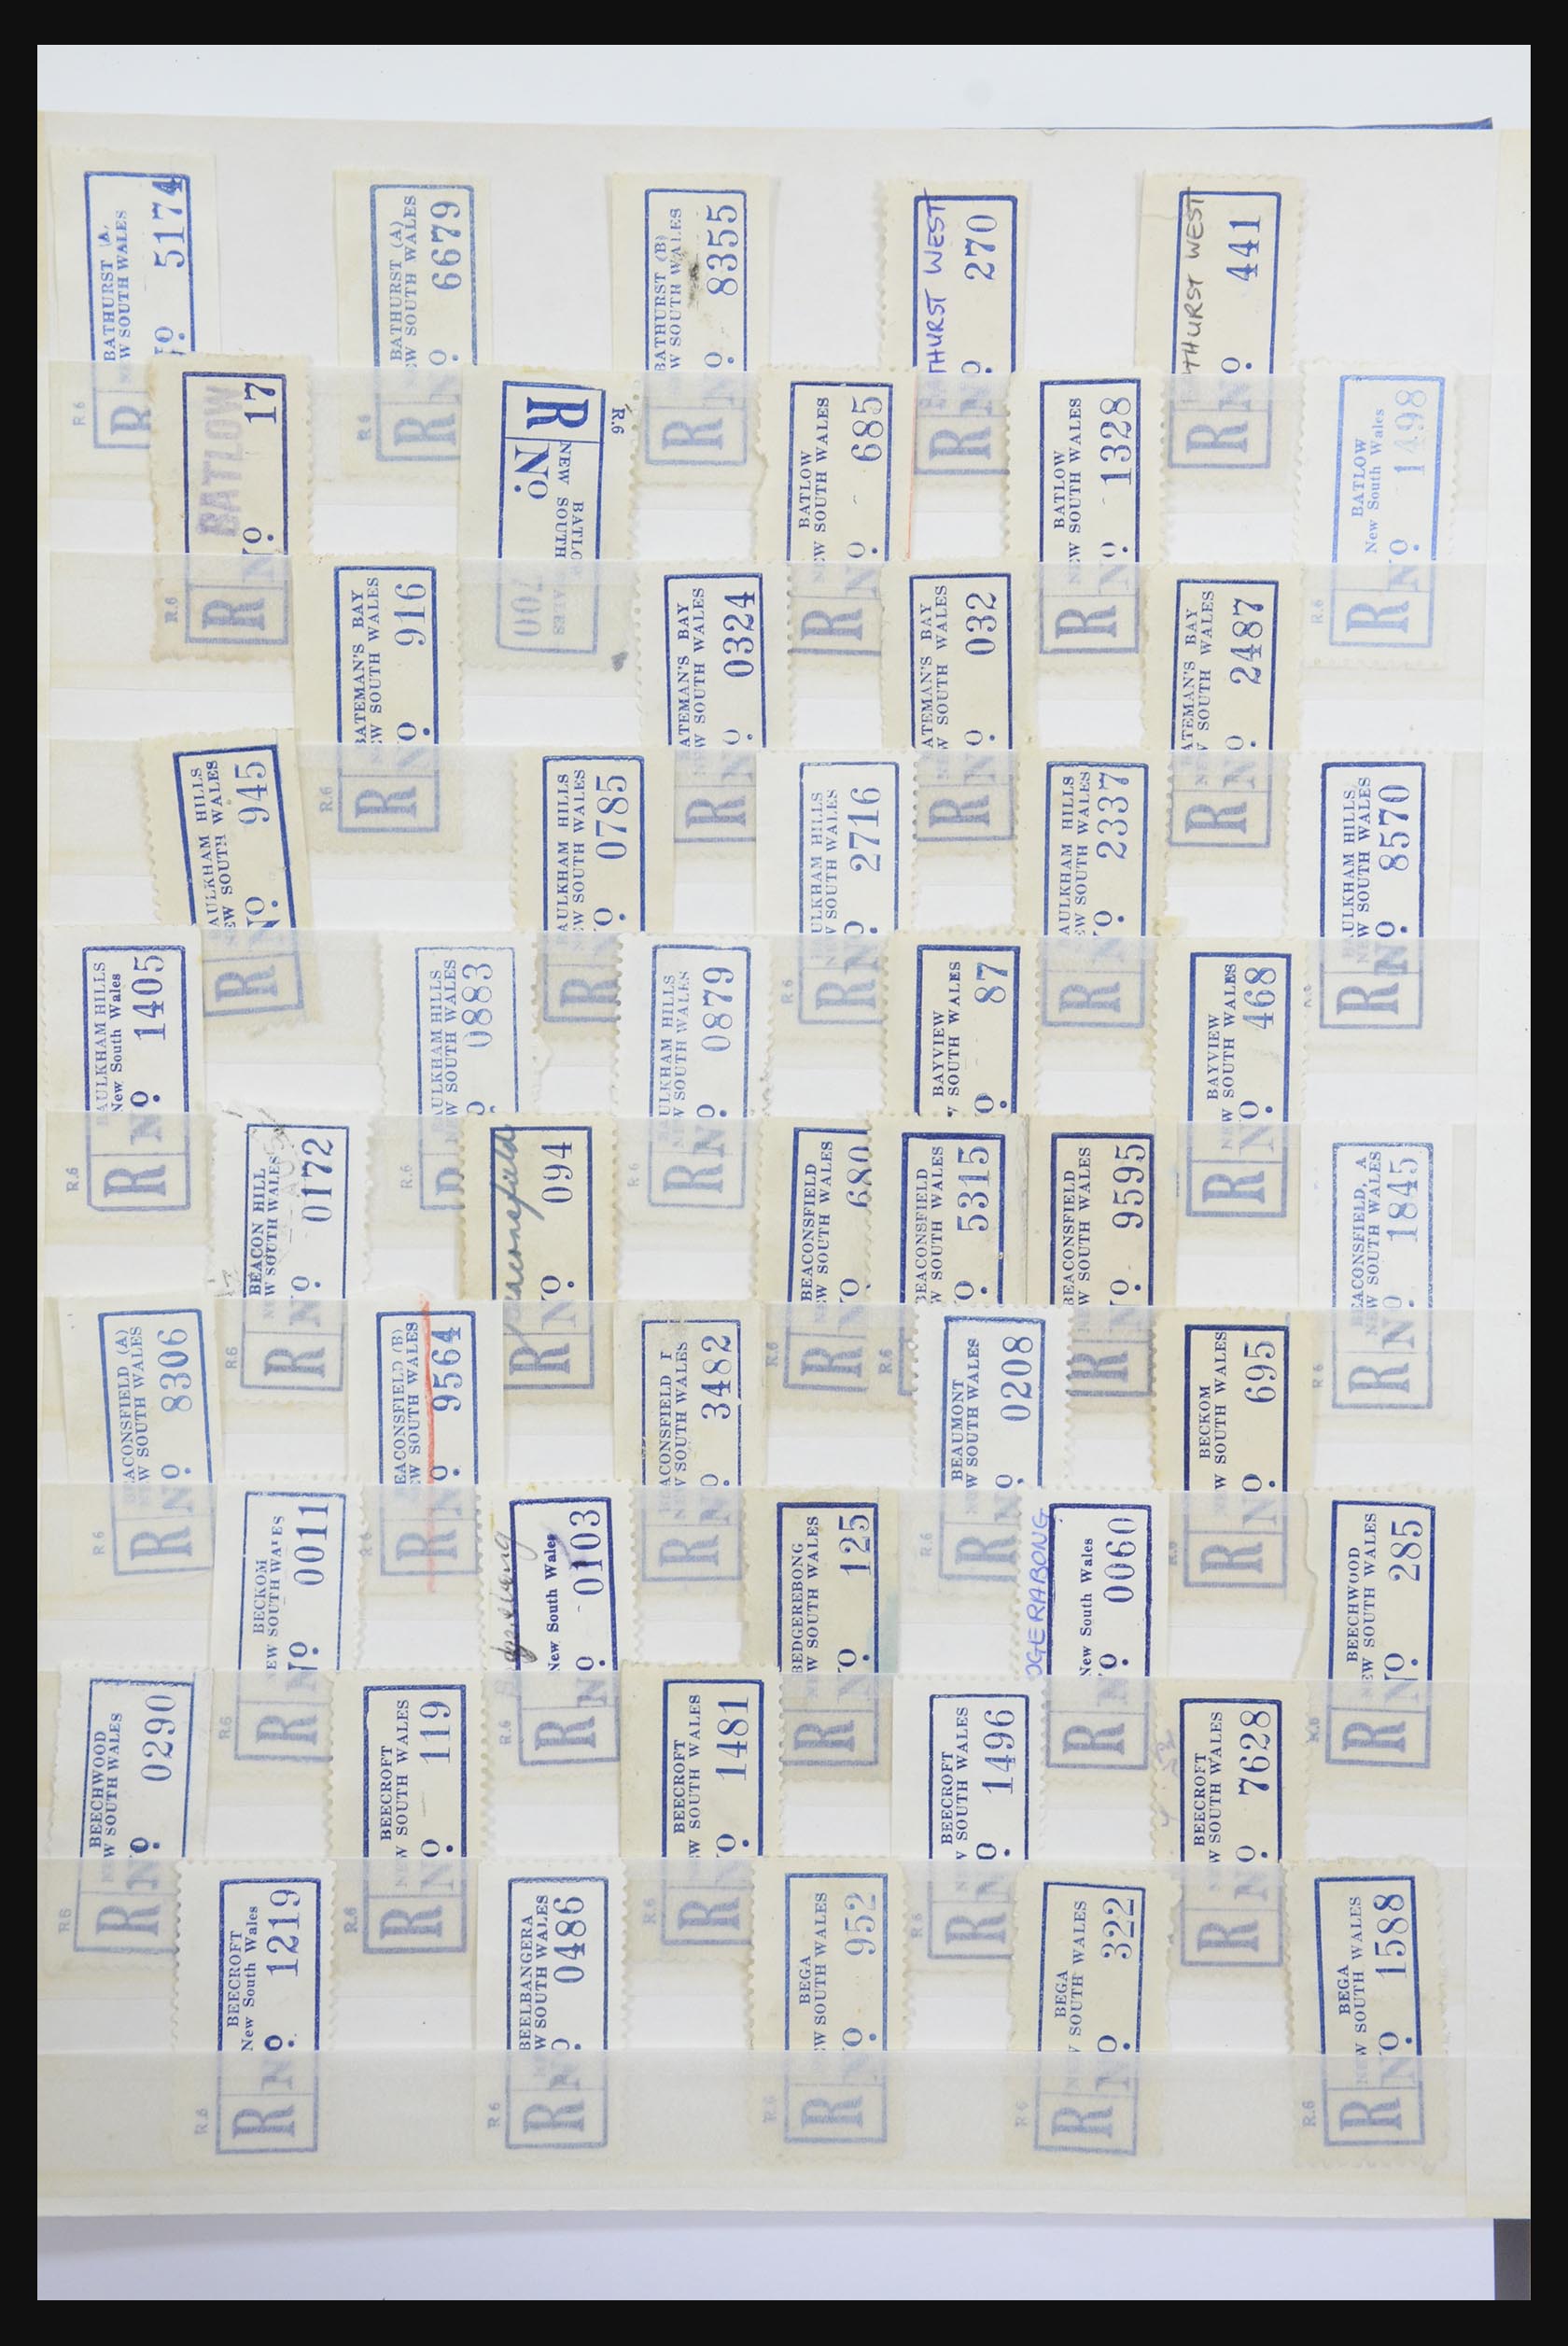 R.6
R
BATHURST (A)
NEW SOUTH WALES
No. 5174
R.6
R
BATHURST (A)
NEW SOUTH WALES
No. 6679
R
BATHURST (B)
NEW SOUTH WALES
No. 8355
R
THURST WEST
No. 270
R
THURST WEST
No. 441
R.6
R
BATLOW
No. 17
R.6
R
BATLO
NEW SOUTH WALES
No. 002
R
BATLOW
NEW SOUTH WALES
No. 685
R
BATLOW
NEW SOUTH WALES
No. 1328
R.6
R
BATLOW
New South Wales
No. 1498
R.6
R
BATEMAN'S BAY
NEW SOUTH WALES
No. 916
R
ATEMAN'S BAY
NEW SOUTH WALES
No. 0324
R
ATEMAN'S BAY
NEW SOUTH WALES
No. 032
R
ATEMAN'S BAY
NEW SOUTH WALES
No. 2487
R
AULKHAM HILLS
NEW SOUTH WALES
No. 945
R
AULKHAM HILLS
NEW SOUTH WALES
No. 0785
R.6
R
ULKHAM HILLS
NEW SOUTH WALES
No. 2716
R
AULKHAM HILLS
NEW SOUTH WALES
No. 2337
R
AULKHAM HILLS
NEW SOUTH WALES
No. 8570
R.6
R
BAULKHAM HILLS
New South Wales
No. 1405
R.6
R
AULKHAM HILLS
NEW SOUTH WALES
No. 0883
R.6
R
BAULKHAM HILLS
NEW SOUTH WALES
No. 0879
BAYVIEW
SOUTH WALES
No. 87
R
BAYVIEW
NEW SOUTH WALES
No. 468
R.6
R
BEACON HILL
NEW SOUTH WALES
No. 0172
R
eaconsfield
No. 094
R.6
R
BEACONSFIELD
NEW SOUTH WALES
No. 680
R.6
BEACONSFIELD
SOUTH WALES
No. 5315
R
BEACONSFIELD
NEW SOUTH WALES
No. 9595
R.6
R
BEACONSFIELD, A
NEW SOUTH WALES
No. 1845
R.6
R
BEACONSFIELD (A)
NEW SOUTH WALES
No. 8306
R.6
R
EACONSFIELD (B)
NEW SOUTH WALES
No. 9564
R
ACONSFIELD
NEW SOUTH WALES
No. 3482
R.6
R
BEAUMONT
NEW SOUTH WALES
No. 0208
R.6
R
BECKOM
NEW SOUTH WALES
No. 695
R.6
R
BECKOM
NEW SOUTH WALES
No. 0011
R.6
R
New South Wales
No. 0103
R
BEDGEREBONG
NEW SOUTH WALES
No. 125
R
OGERABONG
New South Wales
No. 0060
R.6
R
BEECHWOOD
NEW SOUTH WALES
No. 285
R.6
R
BEECHWOOD
NEW SOUTH WALES
No. 0290
R.6
R
BEECROFT
NEW SOUTH WALES
No. 119
R.6
R
BEECROFT
NEW SOUTH WALES
No. 1481
R.6
R
BEECROFT
NEW SOUTH WALES
No. 1496
R
BEECROFT
NEW SOUTH WALES
No. 7628
R.6
R
BEECROFT
New South Wales
No. 1219
R.6
R
BEELBANGERA
NEW SOUTH WALES
No. 0486
R.6
R
BEGA
NEW SOUTH WALES
No. 952
R.6
R
BEGA
NEW SOUTH WALES
No. 322
R.6
R
BEGA
NEW SOUTH WALES
No. 1588